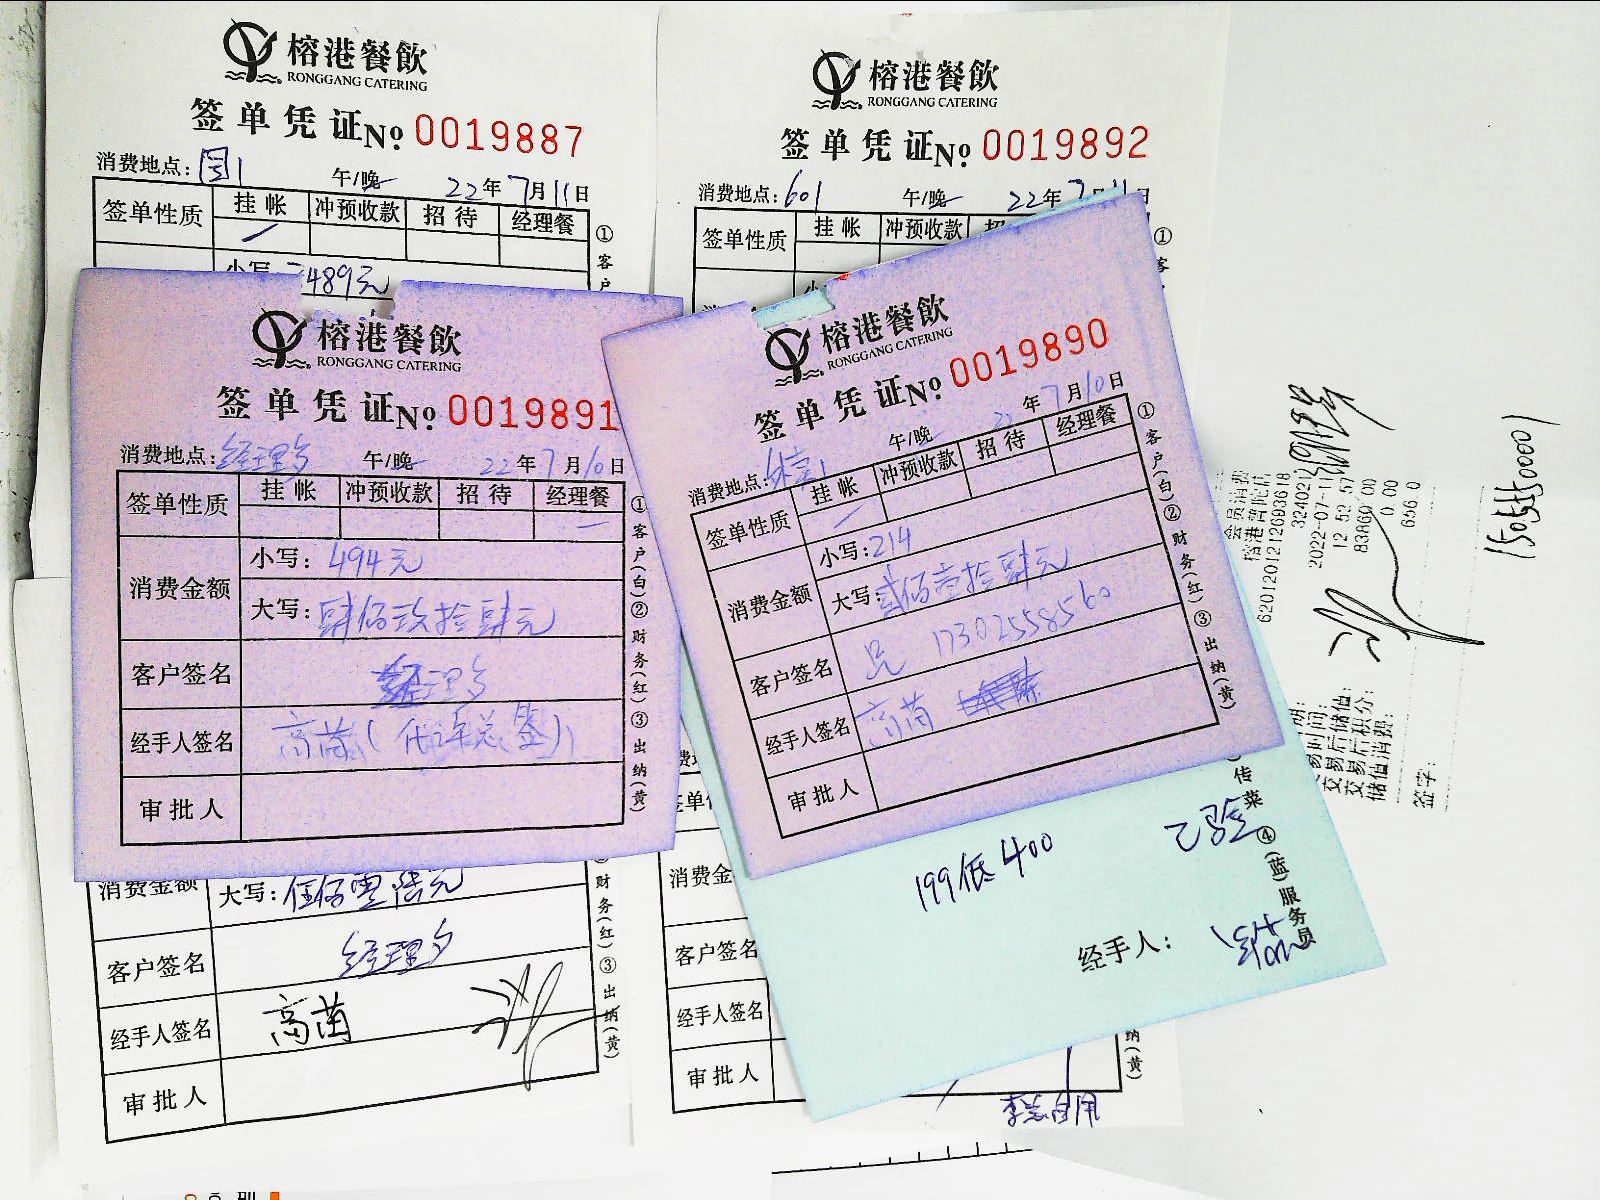 榕港餐飲
RONGGANG CATERING
签单凭证No 0019887
消费地点: 午/晚 22年7月11日
签单性质 挂帐 冲预收款 招待 经理餐
小写 489元
①客户
榕港餐飲
RONGGANG CATERING
签单凭证No 0019892
消费地点:601 午/晚 22年7月11日
签单性质 挂帐 冲预收款
①客
榕港餐飲
RONGGANG CATERING
签单凭证No 0019891
消费地点:经理夕 午/晚 22年7月10日
签单性质 挂帐 冲预收款 招待 经理餐
消费金额 小写:494元
大写:肆佰玖拾肆元
客户签名 经理夕
经手人签名 高茵(代许总签)
审批人
①客户(白)②财务(红)③出纳(黄)
榕港餐飲
RONGGANG CATERING
签单凭证No 0019890
消费地点: 午/晚 22年7月10日
签单性质 挂帐 冲预收款 招待 经理餐
消费金额 小写:214
大写:贰佰壹拾肆元
客户签名 17302558560
经手人签名 高茵
审批人
①客户(白)②财务(红)③出纳(黄)
消费金额 大写:伍佰零陆元
客户签名 经理夕
经手人签名 高茵
审批人
财务(红)③出纳(黄)
签单
消费金
客户签名
经手人签名
审批人
纳(黄)
199低400
已验
传菜④(蓝)服务员
经手人:
会员消费
榕港普陀店
6201201212093618
324021
2022-07-11
12:52:57
交易后储值: 83860.00
交易后积分: 0.00
储值消费: 656.0
签字:
15055500001